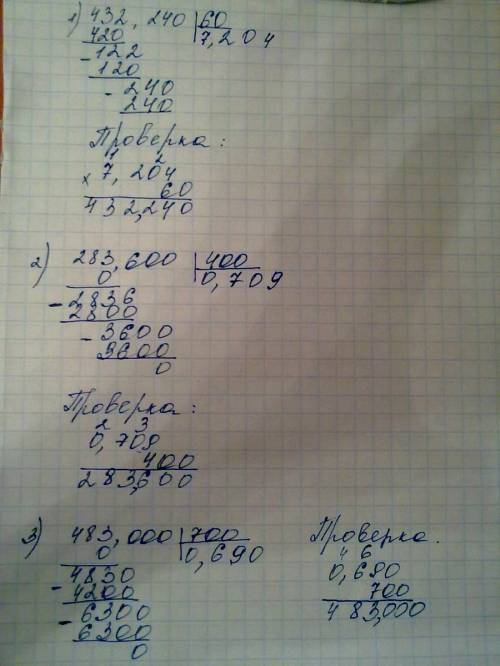 1) 432,240 | 60
420 7,204
- 122
120
- 240
240
Проверка:
1 2
x 7,204
60
432,240
2) 283,600 | 400
0 0,709
- 2836
2800
- 3600
3600
0
Проверка:
2 3
0,709
400
283,600
3) 483,000 | 700
0 0,690
- 4830
4200
- 6300
6300
0
Проверка.
4 6
0,690
700
483,000